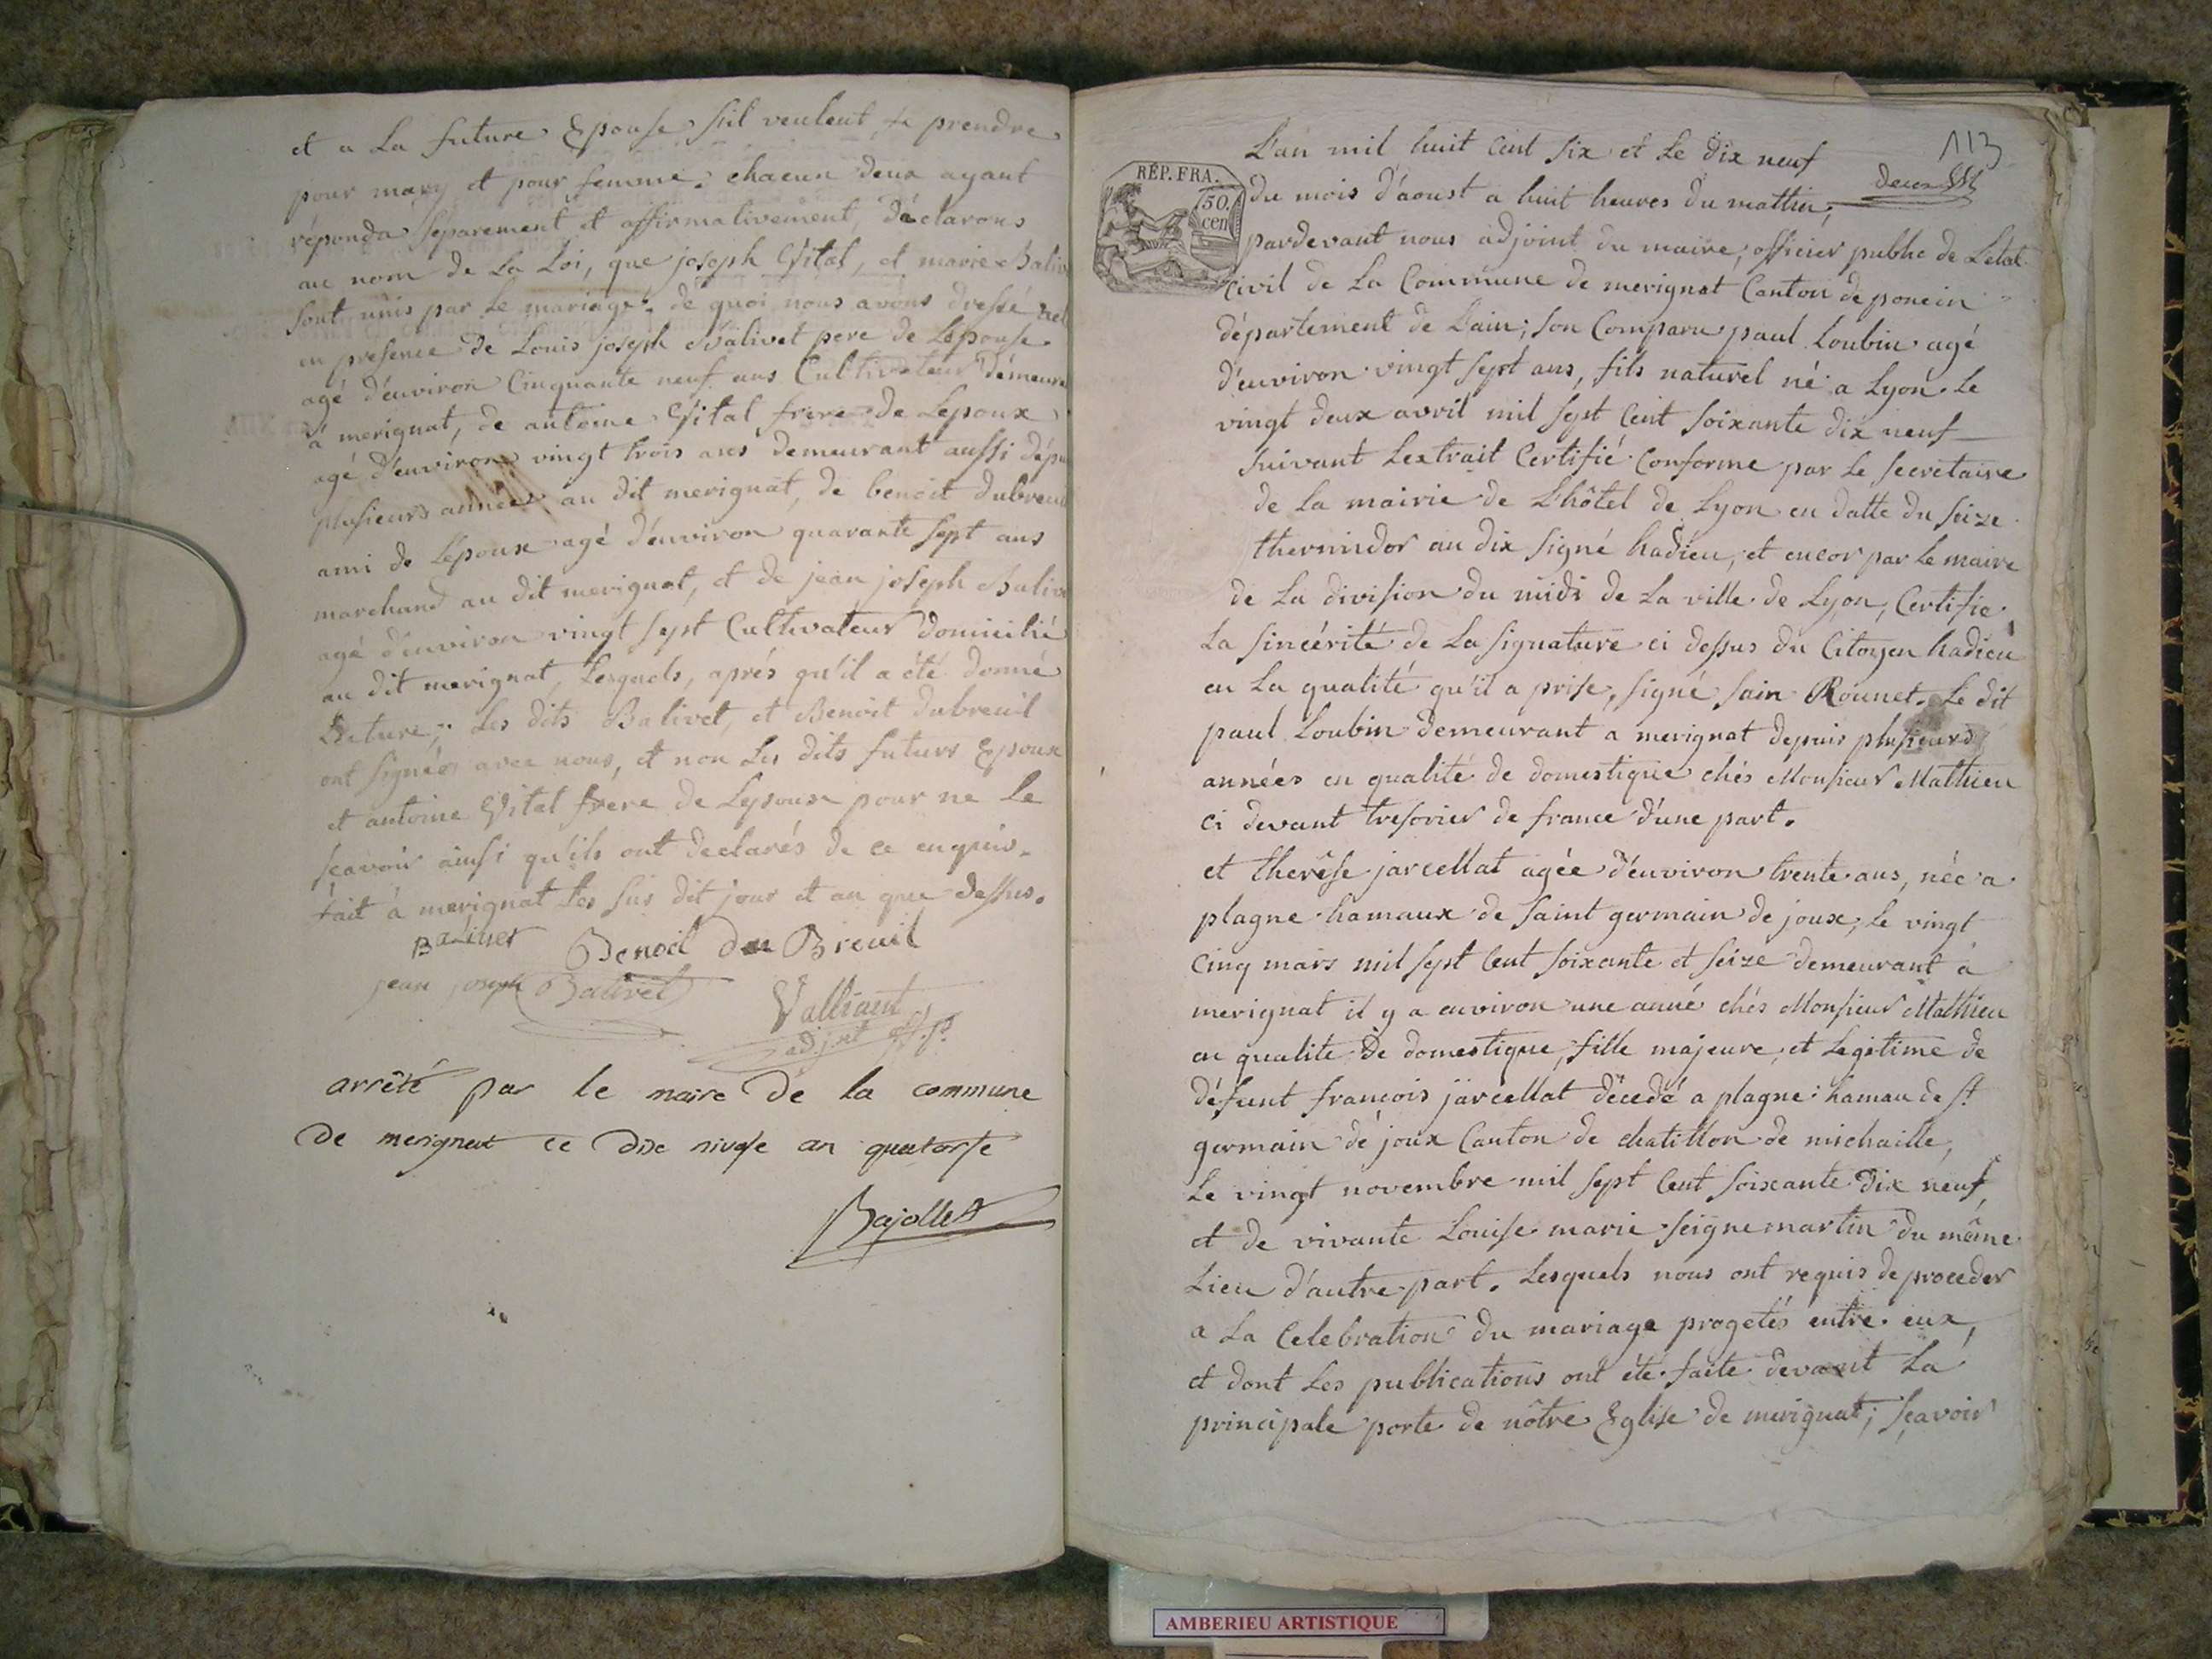 et a La future Epouse s'il veulent se prendre
pour mary et pour femme; chacun deux ayant
répondu séparement et affirmativement, Déclarons
au nom de La Loi, que joseph Vital, et marie Baliv
sont unis par Le mariage; de quoi nous avons dressé
en présence de Louis joseph Balivet pere de Lépouse
agé d'environ Cinquante neuf ans Cultivateur démeura
a merignat, de antoine Vital frere de Lepoux
agé d'environ vingt trois ans demeurant aussi dépu
plusieurs années au dit merignat, de benoit dubreui
ami de Lépoux agé d'environ quarante sept ans
marchand au dit merignat, et de jean joseph Baliv
agé d'environ vingt sept Cultivateur domicilié
au dit merignat, Lesquels, aprés qu'il a été donné
Lecture; Les dits Balivet, et Benoit dubreuil
ont signés avec nous, et non Les dits futurs Epoux
et antoine Vital frere de Lepoux pour ne Le
sçavoir ainsi qu'ils ont declarés de ce enquis.
fait à merignat Les sus dit jour et an que dessus.
Balivet Benoit du Breuil
jean joseph Balivet
Valliant
adjoint off. p.
arrêté par le maire de la commune
de merignat ce dix nivose an quatorse
Bajollet
113
L'an mil huit Cent six et Le dix neuf
RÉP. FRA.
50 cen
du mois d'aoust a huit heures du mattin,
pardevant nous adjoint du maire, officier public de Letat
civil de La Commune de merignat Canton de poncin
département de Lain; son Comparu paul Loubin agé
d'environ vingt sept ans, fils naturel né a Lyon Le
vingt deux avril mil sept Cent soixante dix neuf
suivant Lextrait Certifié Conforme par Le secretaire
de La mairie de L'hôtel de Lyon en datte du seize
thermidor an dix signé hadieu, et encor par Le maire
de La division du midi de La ville de Lyon, Certifie
La sincérité de La signature ci dessus du Citoyen hadieu
en La qualité qu'il a prise, signé sain Rounet. Le dit
paul Loubin demeurant a merignat depuis plusieurs
années en qualité de domestique chés Monsieur Mathieu
ci devant tresorier de france d'une part.
et therêse jarcellat agée d'environ trente ans, née a
plagne hamaux de saint germain de joux, Le vingt
Cinq mars mil sept Cent soixante et seize demeurant à
merignat il y a environ une anné chés Monsieur Mathieu
en qualite De domestique, fille majeure, et Legitime de
défunt francois jarcellat décedé a plagne hamau de st
germain de joux Canton de chatillon de michaille,
Le vingt novembre mil sept Cent soixante dix neuf,
et de vivante Louise marie seignemartin du même
Lieu d'autre part. Lesquels nous ont requis de proceder
a La Celebration du mariage progetés entre eux,
et dont Les publications ont été faite devant La
principale porte de nôtre Eglise de merignat; sçavoir
AMBERIEU ARTISTIQUE